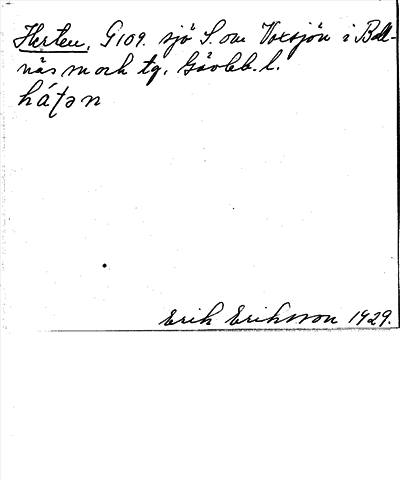 Herten, G109. sjö S. om Voxsjön i Boll-
näs sn och tg, Gävleb. l.
háƫən
Erik Eriksson 1929.